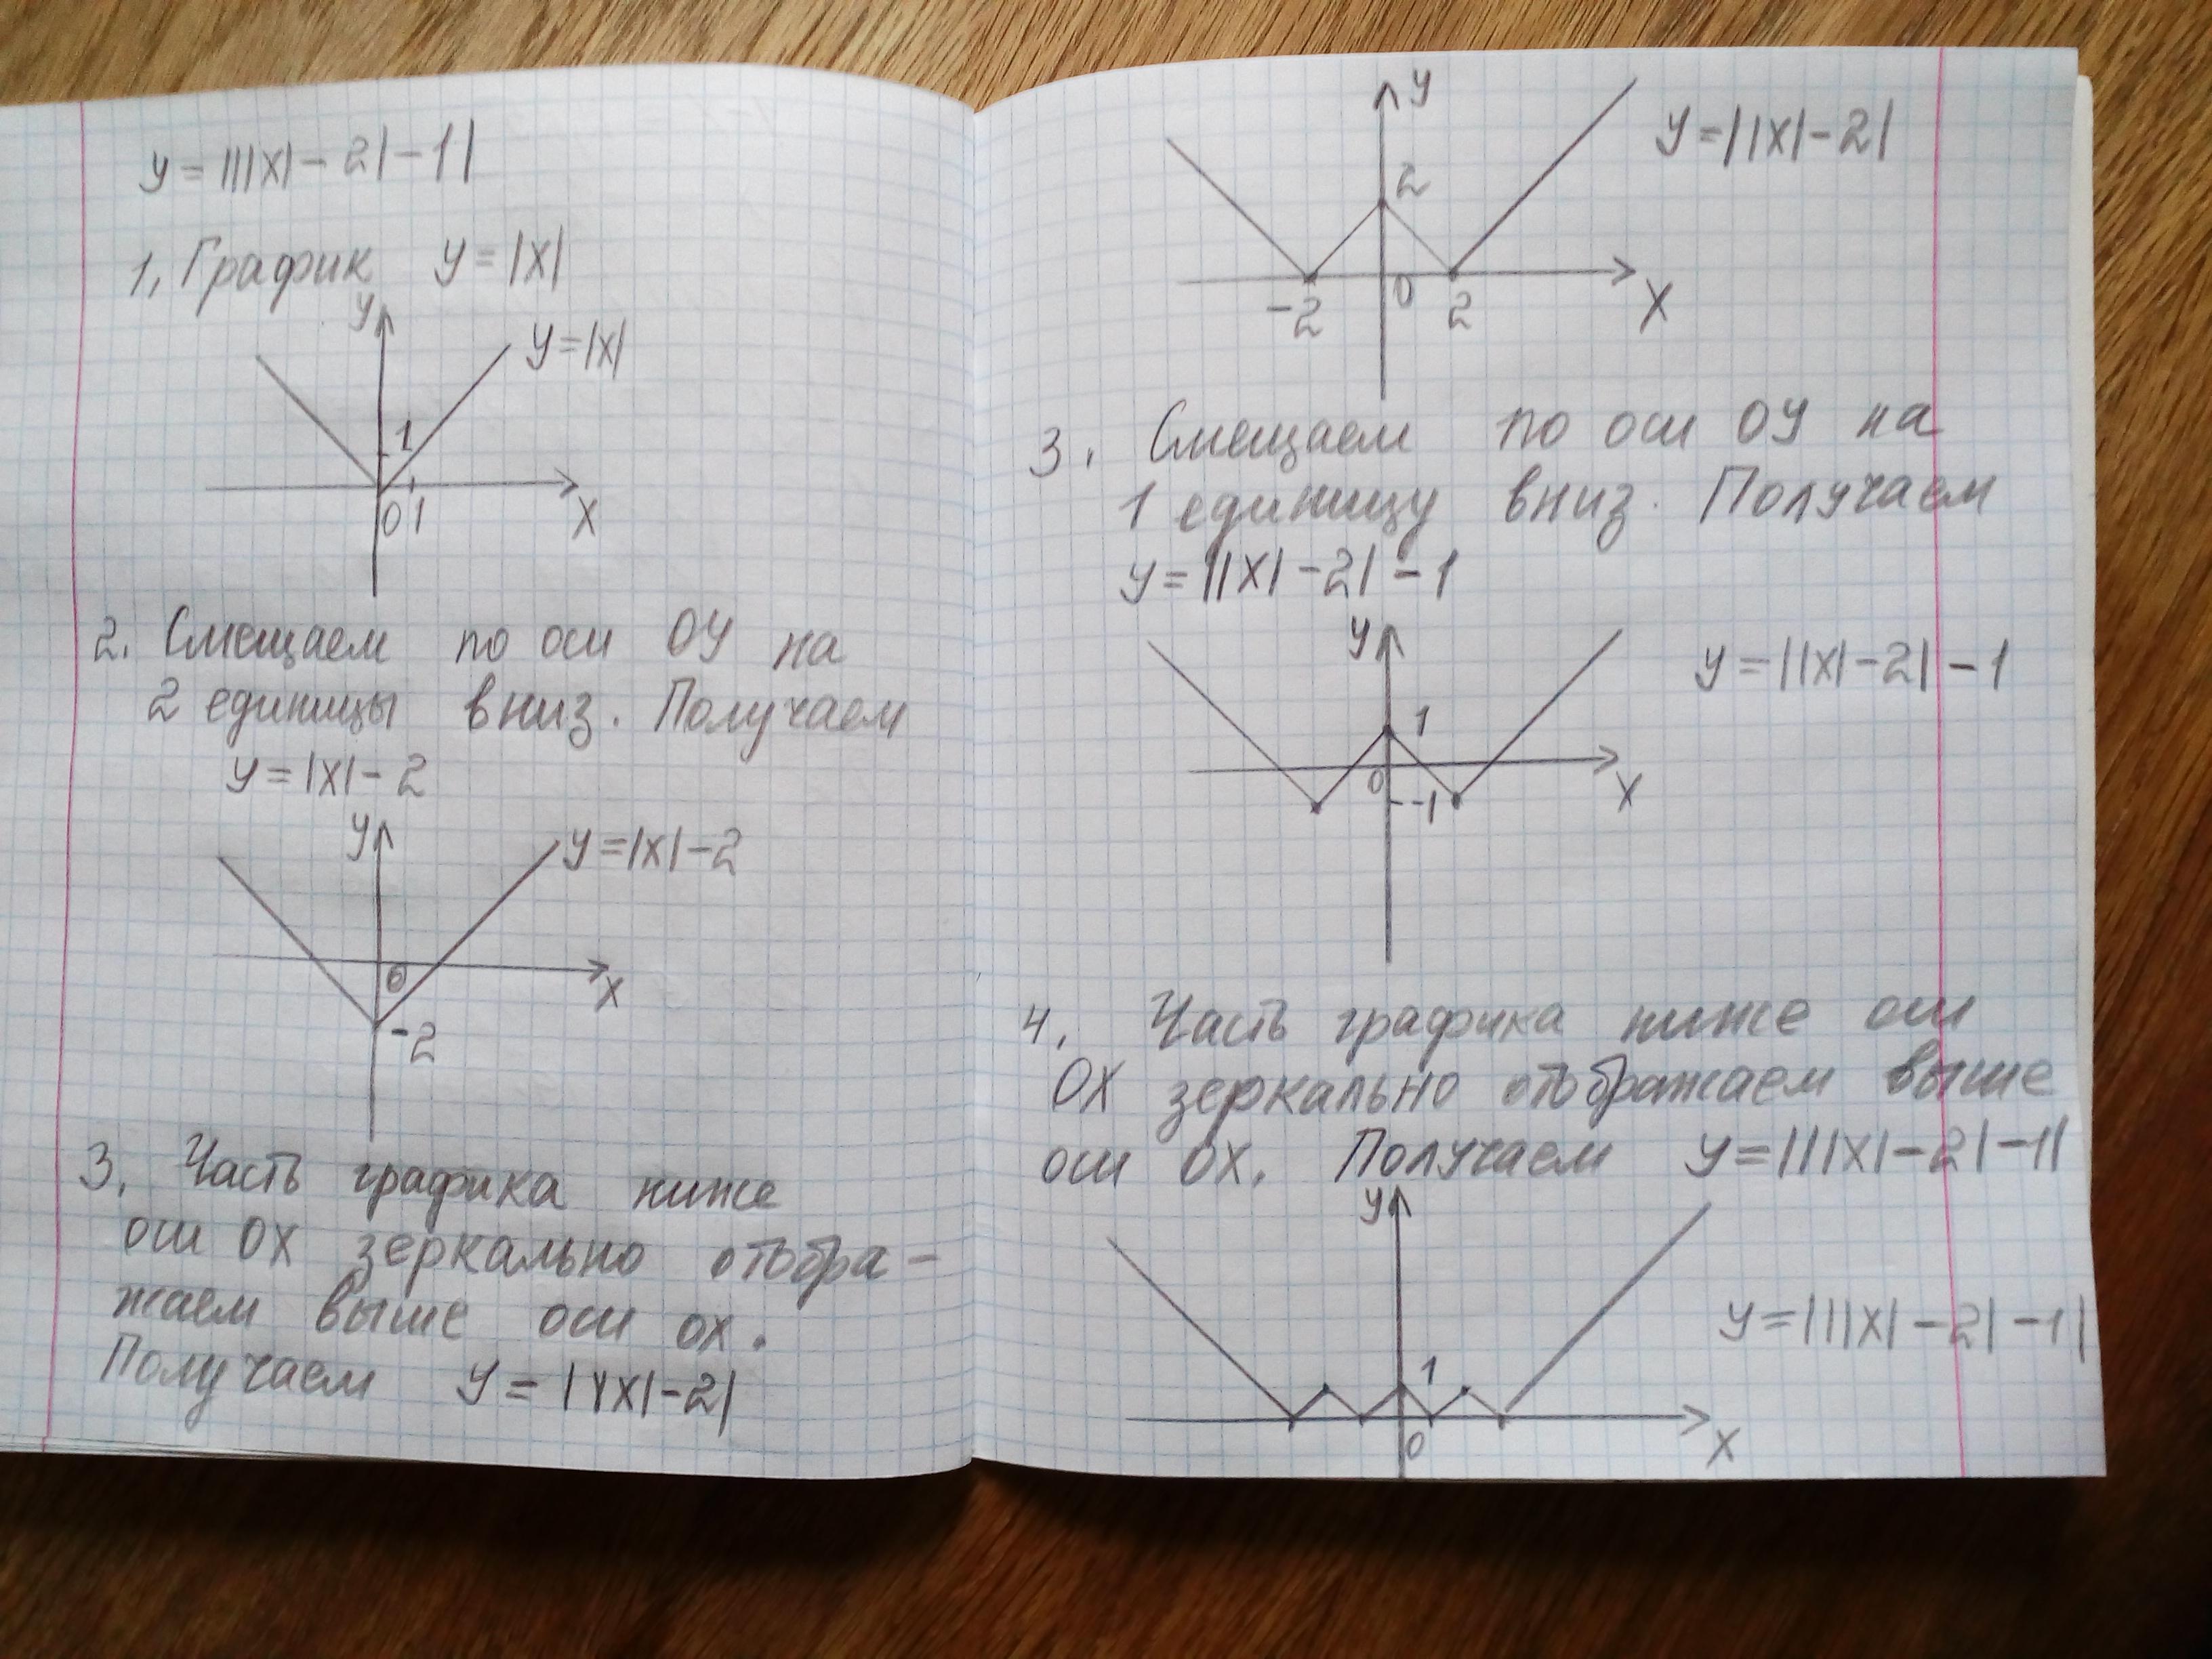 y = |||x| - 2| - 1|
1, График y = |x|
y
y = |x|
1
0 1
x
2. Смещаем по оси ОУ на
2 единицы вниз. Получаем
y = |x| - 2
y
y = |x| - 2
0
x
-2
3, Часть графика ниже
оси ОХ зеркально отобра-
жаем выше оси ОХ.
Получаем y = ||x| - 2|
y
y = ||x| - 2|
2
-2 0 2
x
3. Смещаем по оси ОУ на
1 единицу вниз. Получаем
y = ||x| - 2| - 1
y
y = ||x| - 2| - 1
1
0
x
-1
4. Часть графика ниже оси
ОХ зеркально отображаем выше
оси ОХ. Получаем y = |||x| - 2| - 1|
y
y = |||x| - 2| - 1|
1
0
x